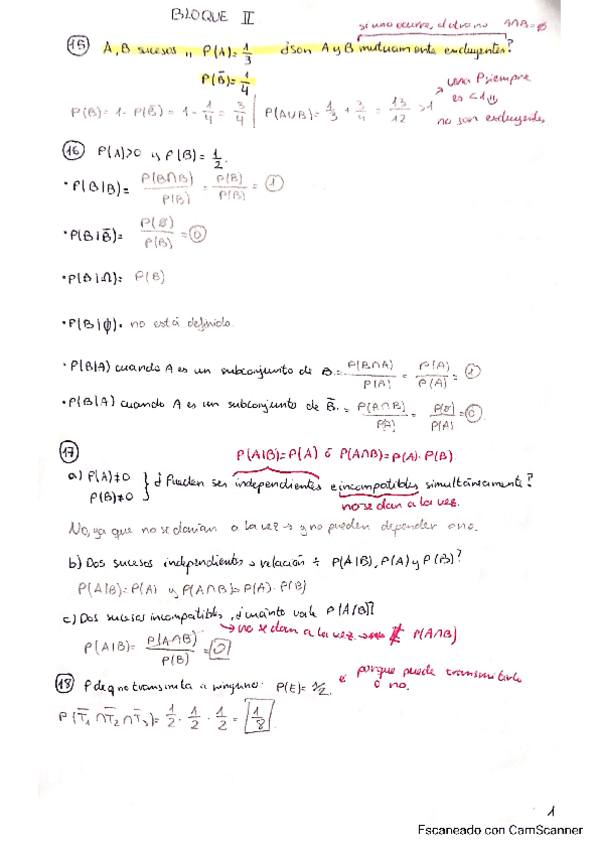 BLOQUE II
si uno ocurre, el otro no A∩B=∅
15 A, B sucesos P(A)=1/3 ¿son A y B mutuamente excluyentes?
P(B̄)=1/4
P(B)=1-P(B̄)=1-1/4=3/4 | P(A∪B)=1/3+3/4=13/12>1
una P siempre
es <1
no son excluyentes
16 P(A)>0 y P(B)=1/2.
• P(B|B)=P(B∩B)/P(B)=P(B)/P(B)=1
• P(B|B̄)=P(∅)/P(B)=0
• P(B|Ω)=P(B)
• P(B|ϕ)= no está definido.
• P(B|A) cuando A es un subconjunto de B.=P(B∩A)/P(A)=P(A)/P(A)=1
• P(B|A) cuando A es un subconjunto de B̄.=P(A∩B)/P(A)=P(∅)/P(A)=0
17 P(A|B)=P(A) ó P(A∩B)=P(A)·P(B)
a) P(A)≠0
P(B)≠0 } ¿Pueden ser independientes e incompatibles simultáneamente?
no se dan a la vez.
No, ya que no se darían a la vez → y no pueden depender
b) Dos sucesos independientes → relación ÷ P(A|B), P(A) y P(B)?
P(A|B)=P(A) y P(A∩B)=P(A)·P(B)
c) Dos sucesos incompatibles, ¿cuánto vale P(A|B)?
→ no se dan a la vez P(A∩B)
P(A|B)=P(A∩B)/P(B)=0
18 P de q no transmita a ninguno: P(E)=1/2.
porque puede transmitirlo
o no.
P(T̄₁∩T̄₂∩T̄₃)=1/2·1/2·1/2=1/8
1
Escaneado con CamScanner